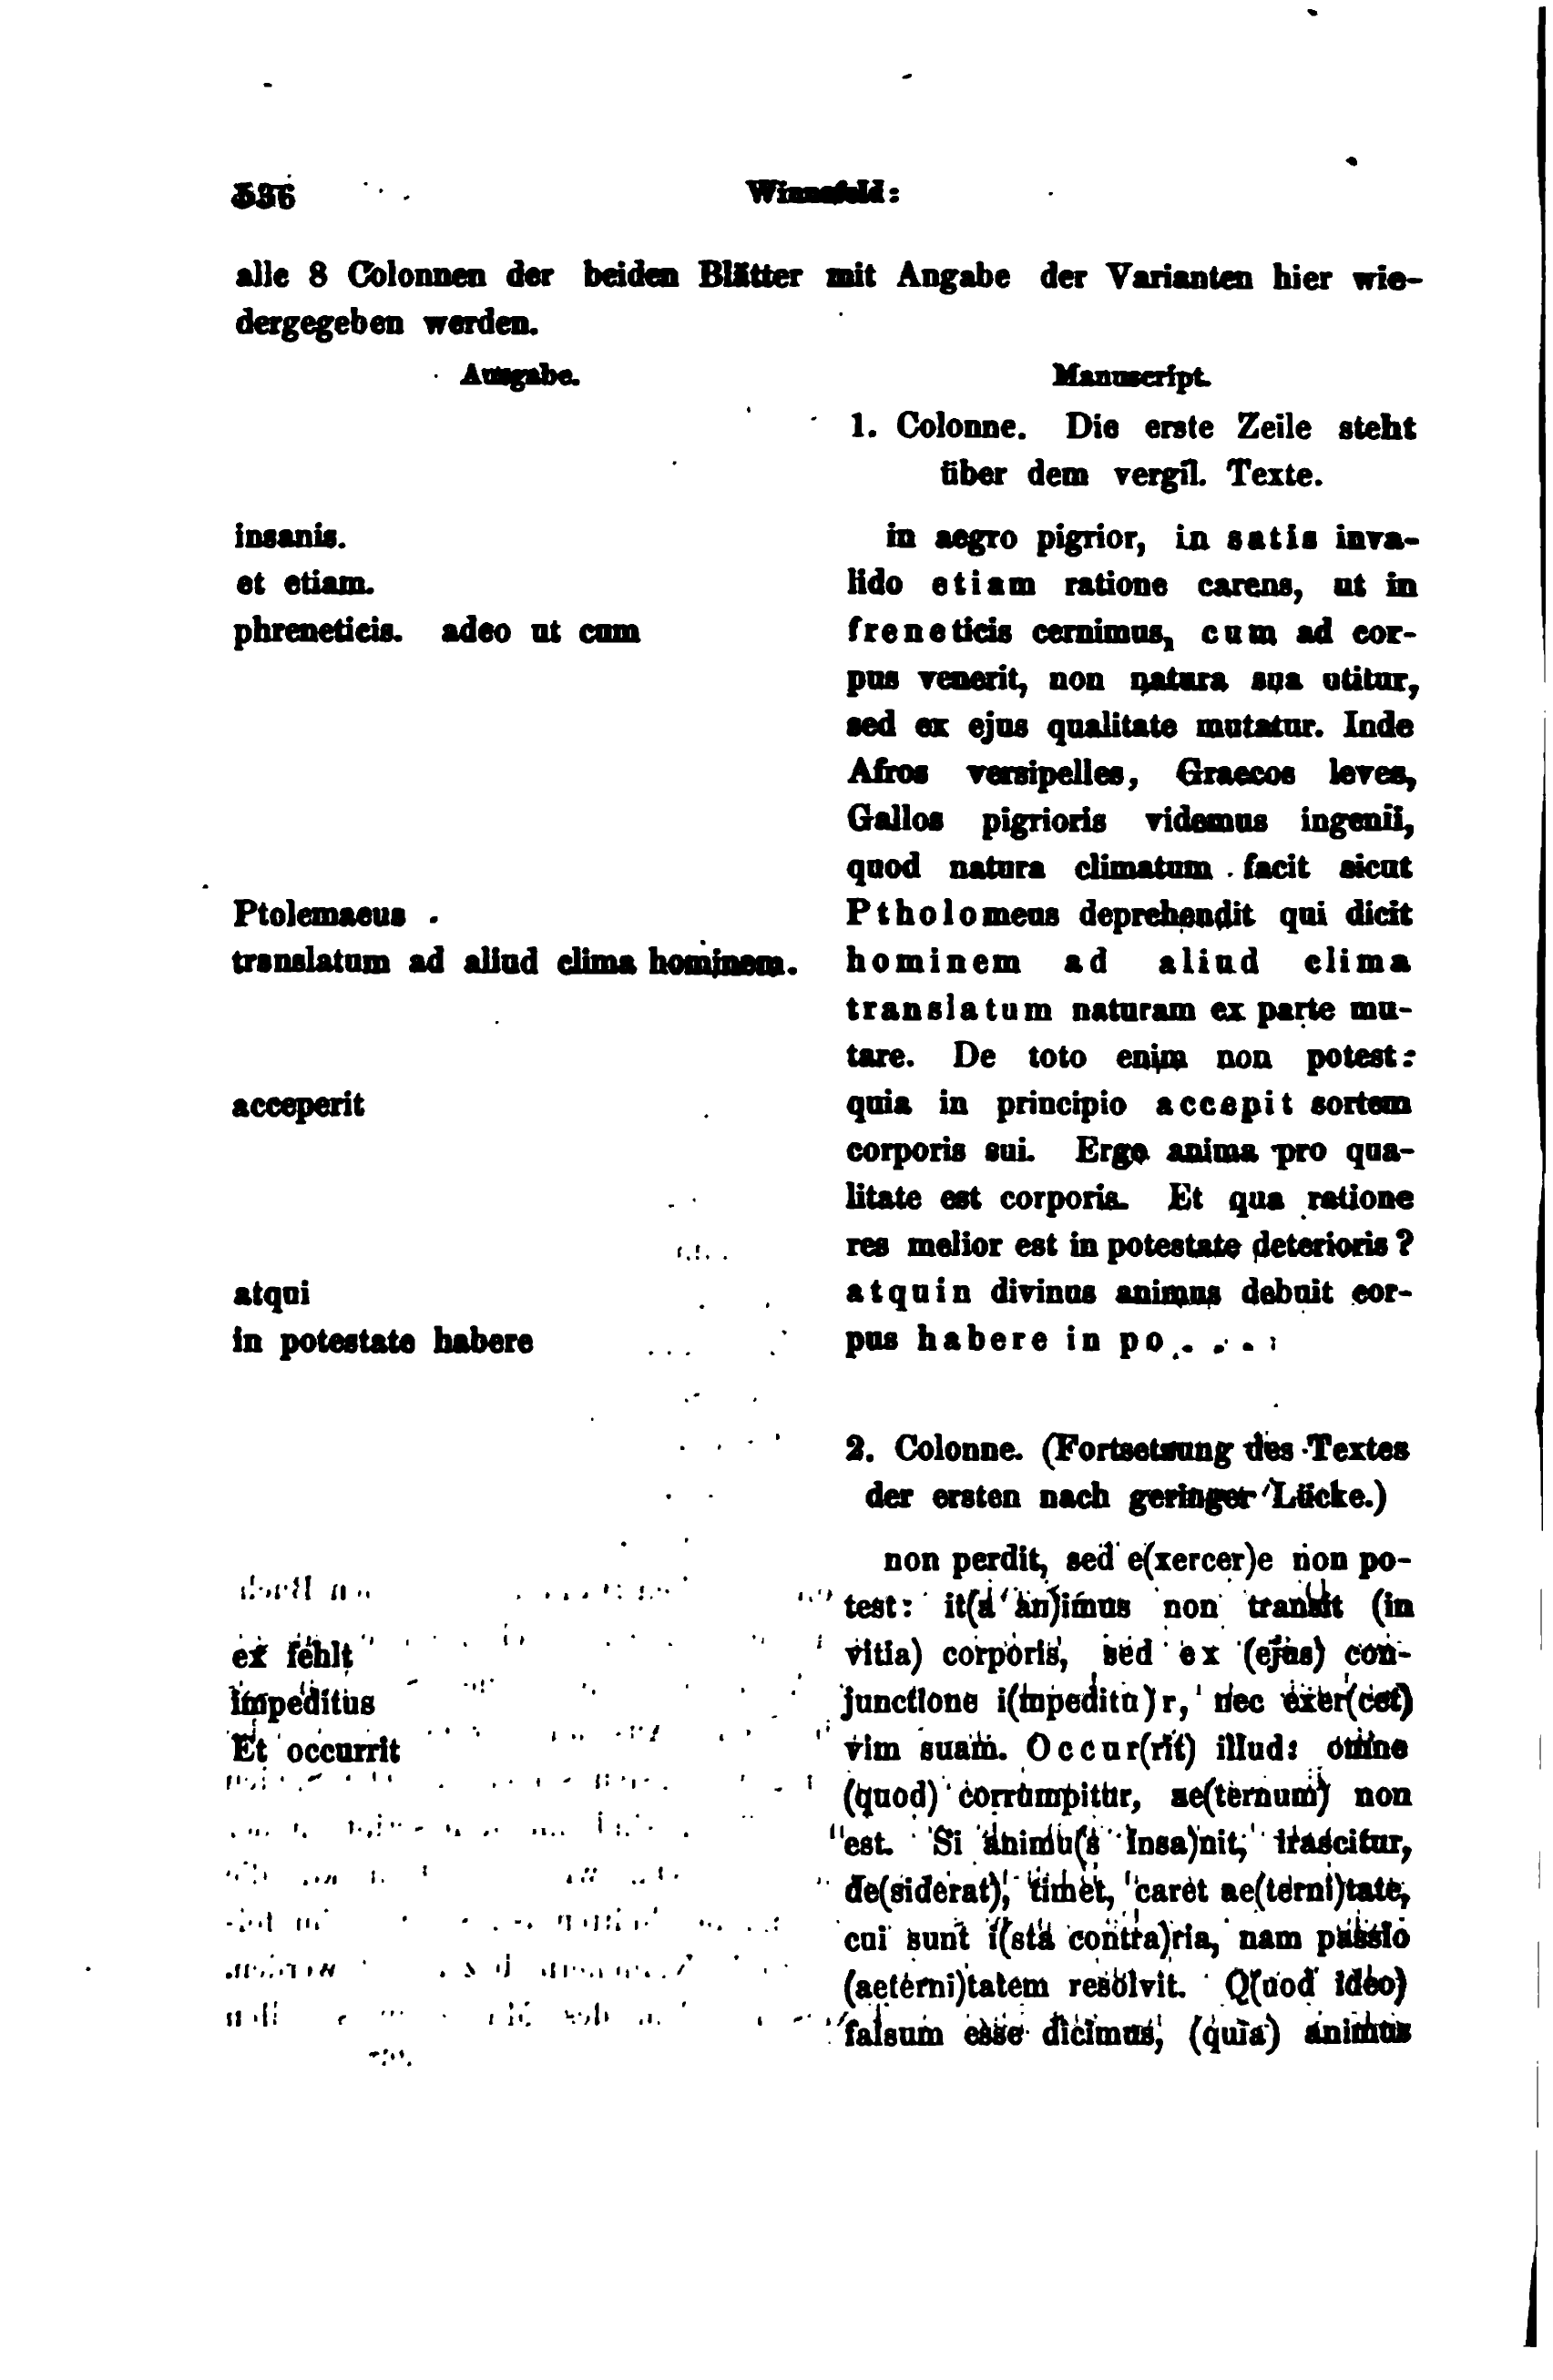 536 Winnefeld:
alle 8 Colonnen der beiden Blätter mit Angabe der Varianten hier wie-
dergegeben werden.
Ausgabe. Manuscript.
1. Colonne. Die erste Zeile steht
über dem vergil. Texte.
insanis. in aegro pigrior, in satis inva-
et etiam. lido etiam ratione carens, ut in
phreneticis. adeo ut cum freneticis cernimus, cum ad cor-
pus venerit, non natura sua utitur,
sed ex ejus qualitate mutatur. Inde
Afros versipelles, Graecos leves,
Gallos pigrioris videmus ingenii,
quod natura climatum facit sicut
Ptolemaeus Ptholomeus deprehendit qui dicit
translatum ad aliud clima hominem. hominem ad aliud clima
translatum naturam ex parte mu-
tare. De toto enim non potest:
acceperit quia in principio accepit sortem
corporis sui. Ergo anima pro qua-
litate est corporis. Et qua ratione
res melior est in potestate deterioris?
atqui atquin divinus animus debuit cor-
in potestate habere pus habere in po . . . .
2. Colonne. (Fortsetzung des Textes
der ersten nach geringer Lücke.)
non perdit, sed e(xercer)e non po-
test: it(a an)imus non transit (in
ex fehlt vitia) corporis, sed ex (ejus) con-
impeditus junctione i(mpeditu)r, nec exer(cet)
Et occurrit vim suam. Occur(rit) illud: omne
(quod) corrumpitur, ae(ternum) non
est. Si animu(s insa)nit, irascitur,
de(siderat), timet, caret ae(terni)tate,
cui sunt i(sta contra)ria, nam passio
(aeterni)tatem resolvit. Q(uod ideo)
falsum esse dicimus, (quia) animus